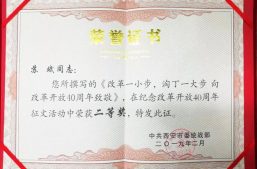 荣誉证书
苏 同志：
您所撰写的《改革一小步，淘丁一大步 向
改革开放40周年致敬》，在纪念改革开放40周年
征文活动中荣获二等奖，特发此证。
中共西安市委统战部
二〇一九年二月